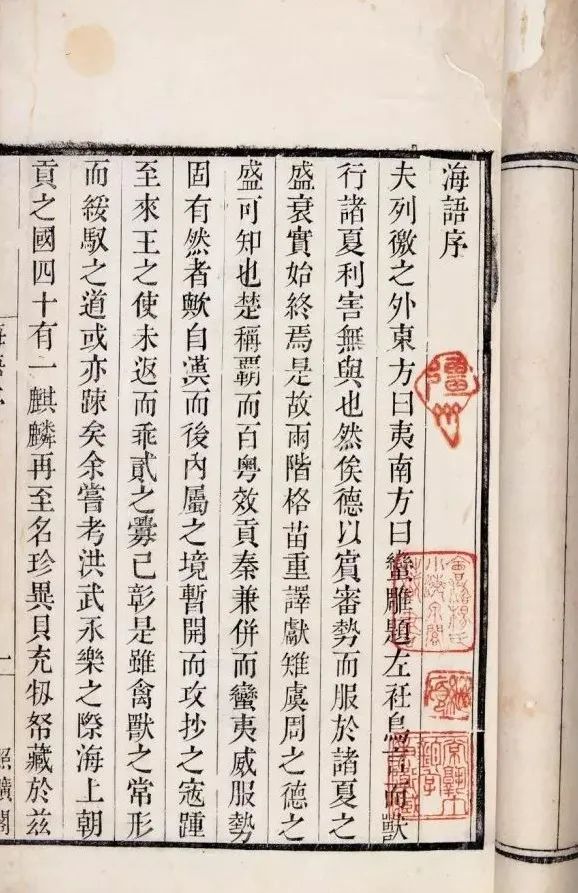 海語序
夫列徼之外東方曰夷南方曰蠻雕題左衽鳥言而獸
行諸夏利害無與也然俟德以賓審勢而服於諸夏之
盛衰實始終焉是故兩階格苗重譯獻雉虞周之德之
盛可知也楚稱覇而百粵效貢秦兼併而蠻夷威服勢
固有然者歟自漢而後內屬之境暫開而攻抄之寇踵
至來王之使未返而乖貳之釁已彰是雖禽獸之常形
而綏馭之道或亦踈矣余嘗考洪武永樂之際海上朝
貢之國四十有一麒麟再至名珍異貝充牣帑藏於茲
海語序
一
照曠閣